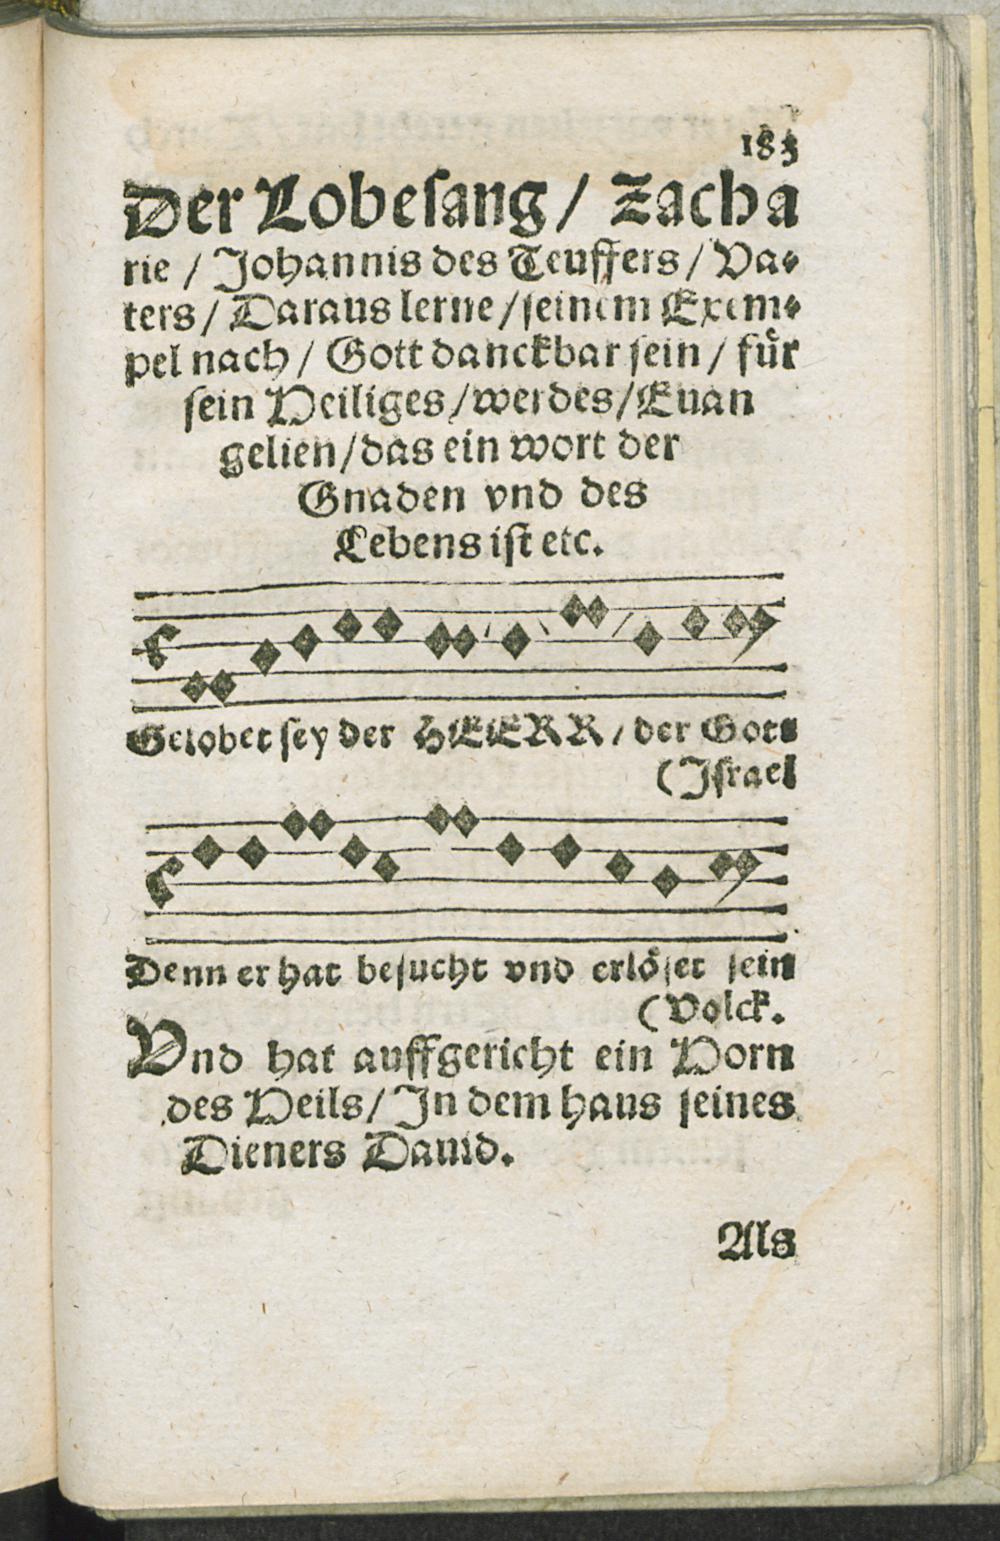 183
Der Lobesang / Zacha
rie / Johannis des Teuffers / Va⸗
ters / Daraus lerne / seinem Exem⸗
pel nach / Gott danckbar sein / für
sein Heiliges / werdes / Euan
gelien / das ein wort der
Gnaden vnd des
Lebens ist etc.
Gelobet sey der HEERR / der Gott
(Israel
Denn er hat besucht vnd erlöset sein
(Volck.
Vnd hat auffgericht ein Horn
des Heils / In dem haus seines
Dieners Dauid.
Als